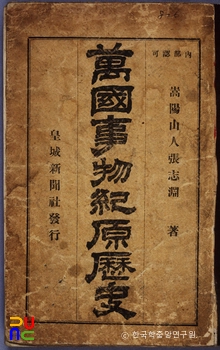 內部認可
嵩陽山人張志淵 著
萬國事物紀原歷史
皇城新聞社發行
© 한국학중앙연구원